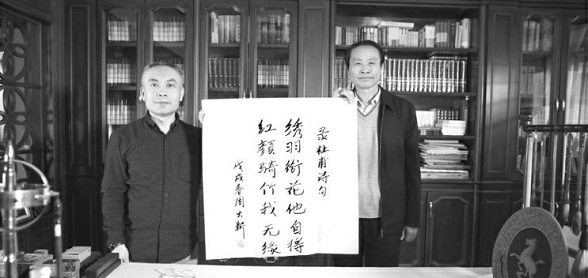 录杜甫诗句
绣羽衔花他自得
红颜骑竹我无缘
戊戌春周大新